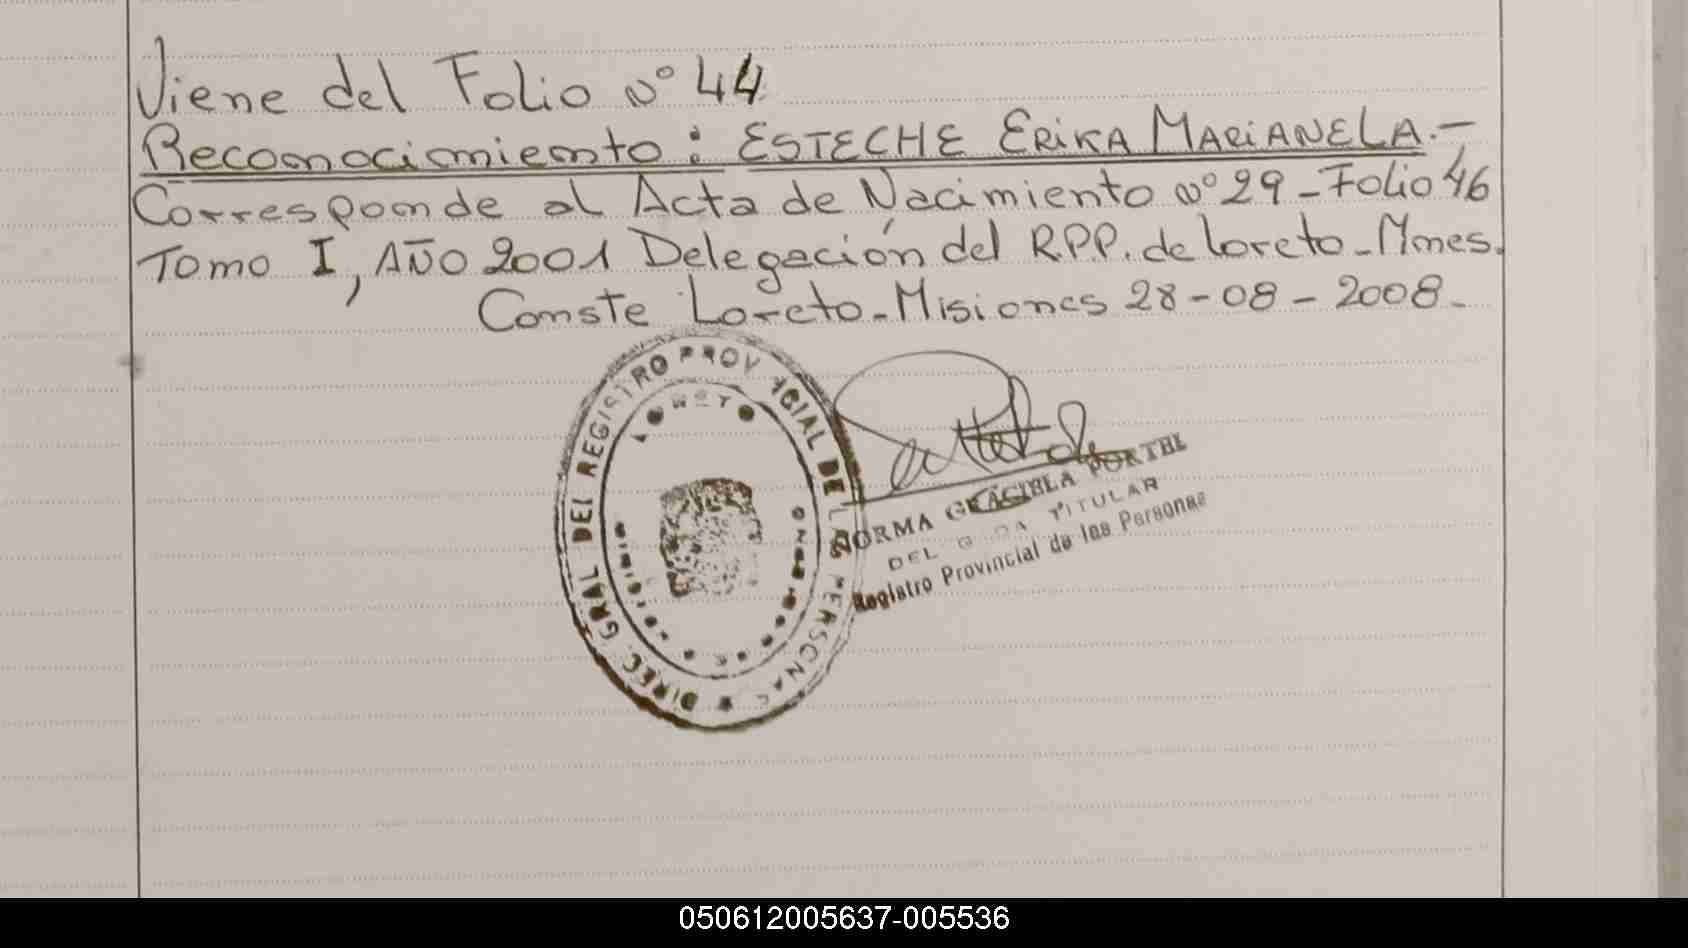 Viene del Folio Nº 44
Reconocimiento: ESTECHE ERIKA MARIANELA.-
Corresponde al Acta de Nacimiento Nº 29 - Folio 46
Tomo I, AÑO 2001 Delegación del R.P.P. de Loreto - Mnes.
Conste Loreto - Misiones 28-08-2008.-
DIREC GRAL DEL REGISTRO PROVINCIAL DE LAS PERSONAS
NORMA GRACIELA
TITULAR
Registro Provincial de las Personas
050612005637-005536